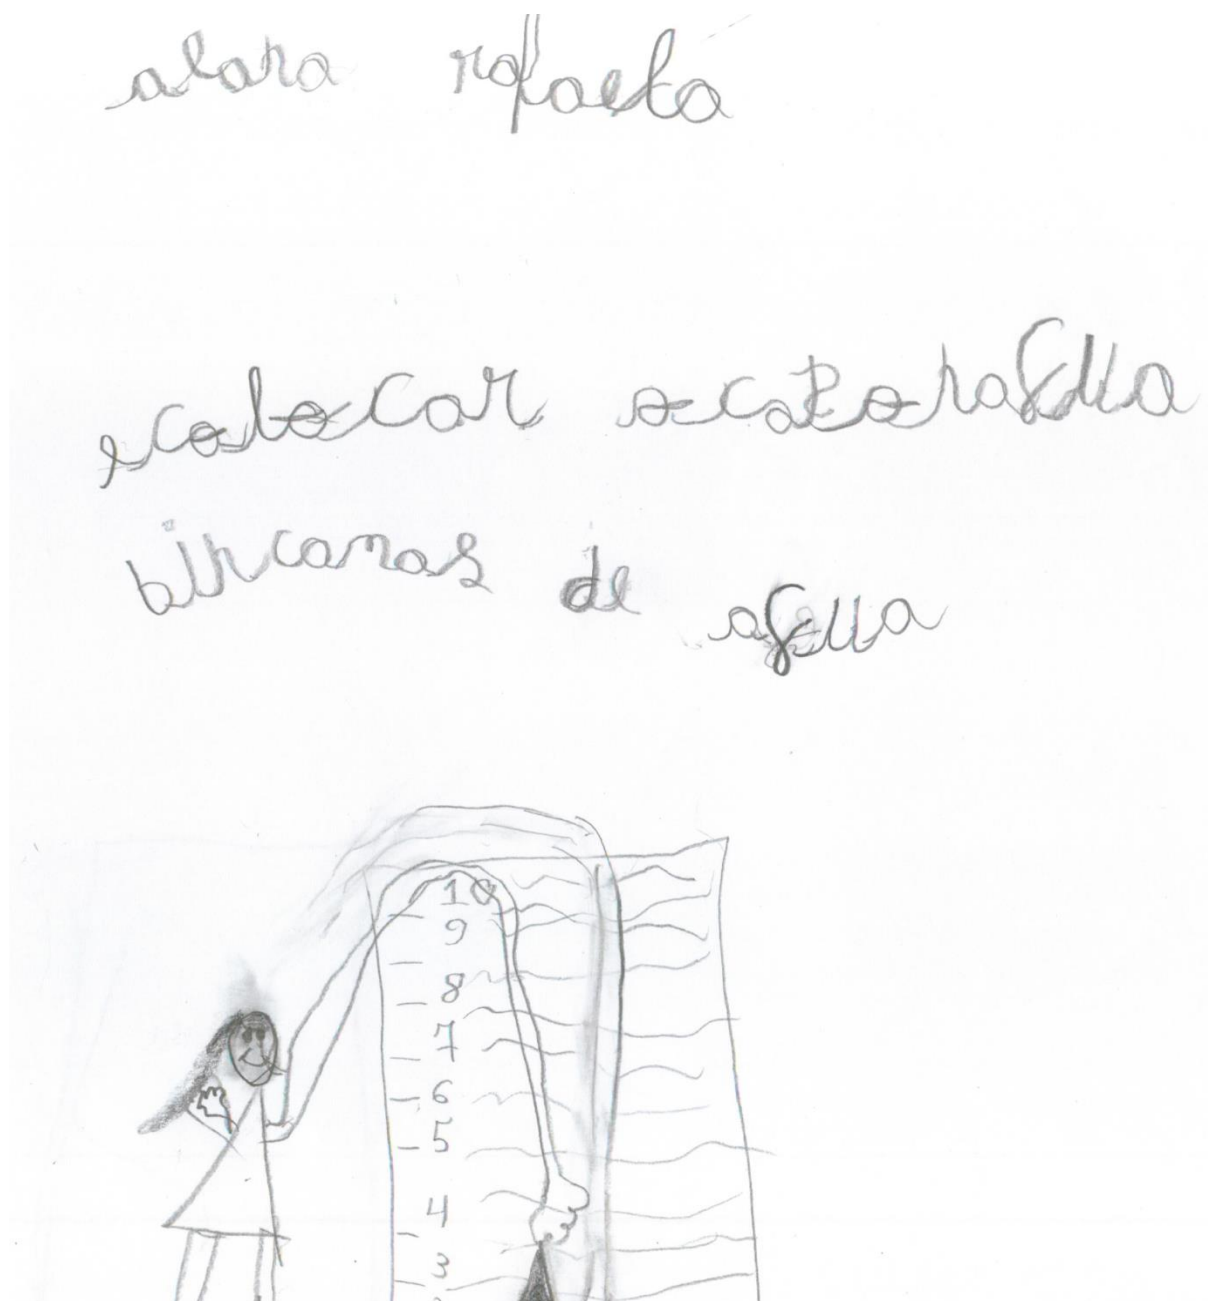 alana rafaela
e colocar a cabora fua
bincanas de afua
10
9
8
7
6
5
4
3